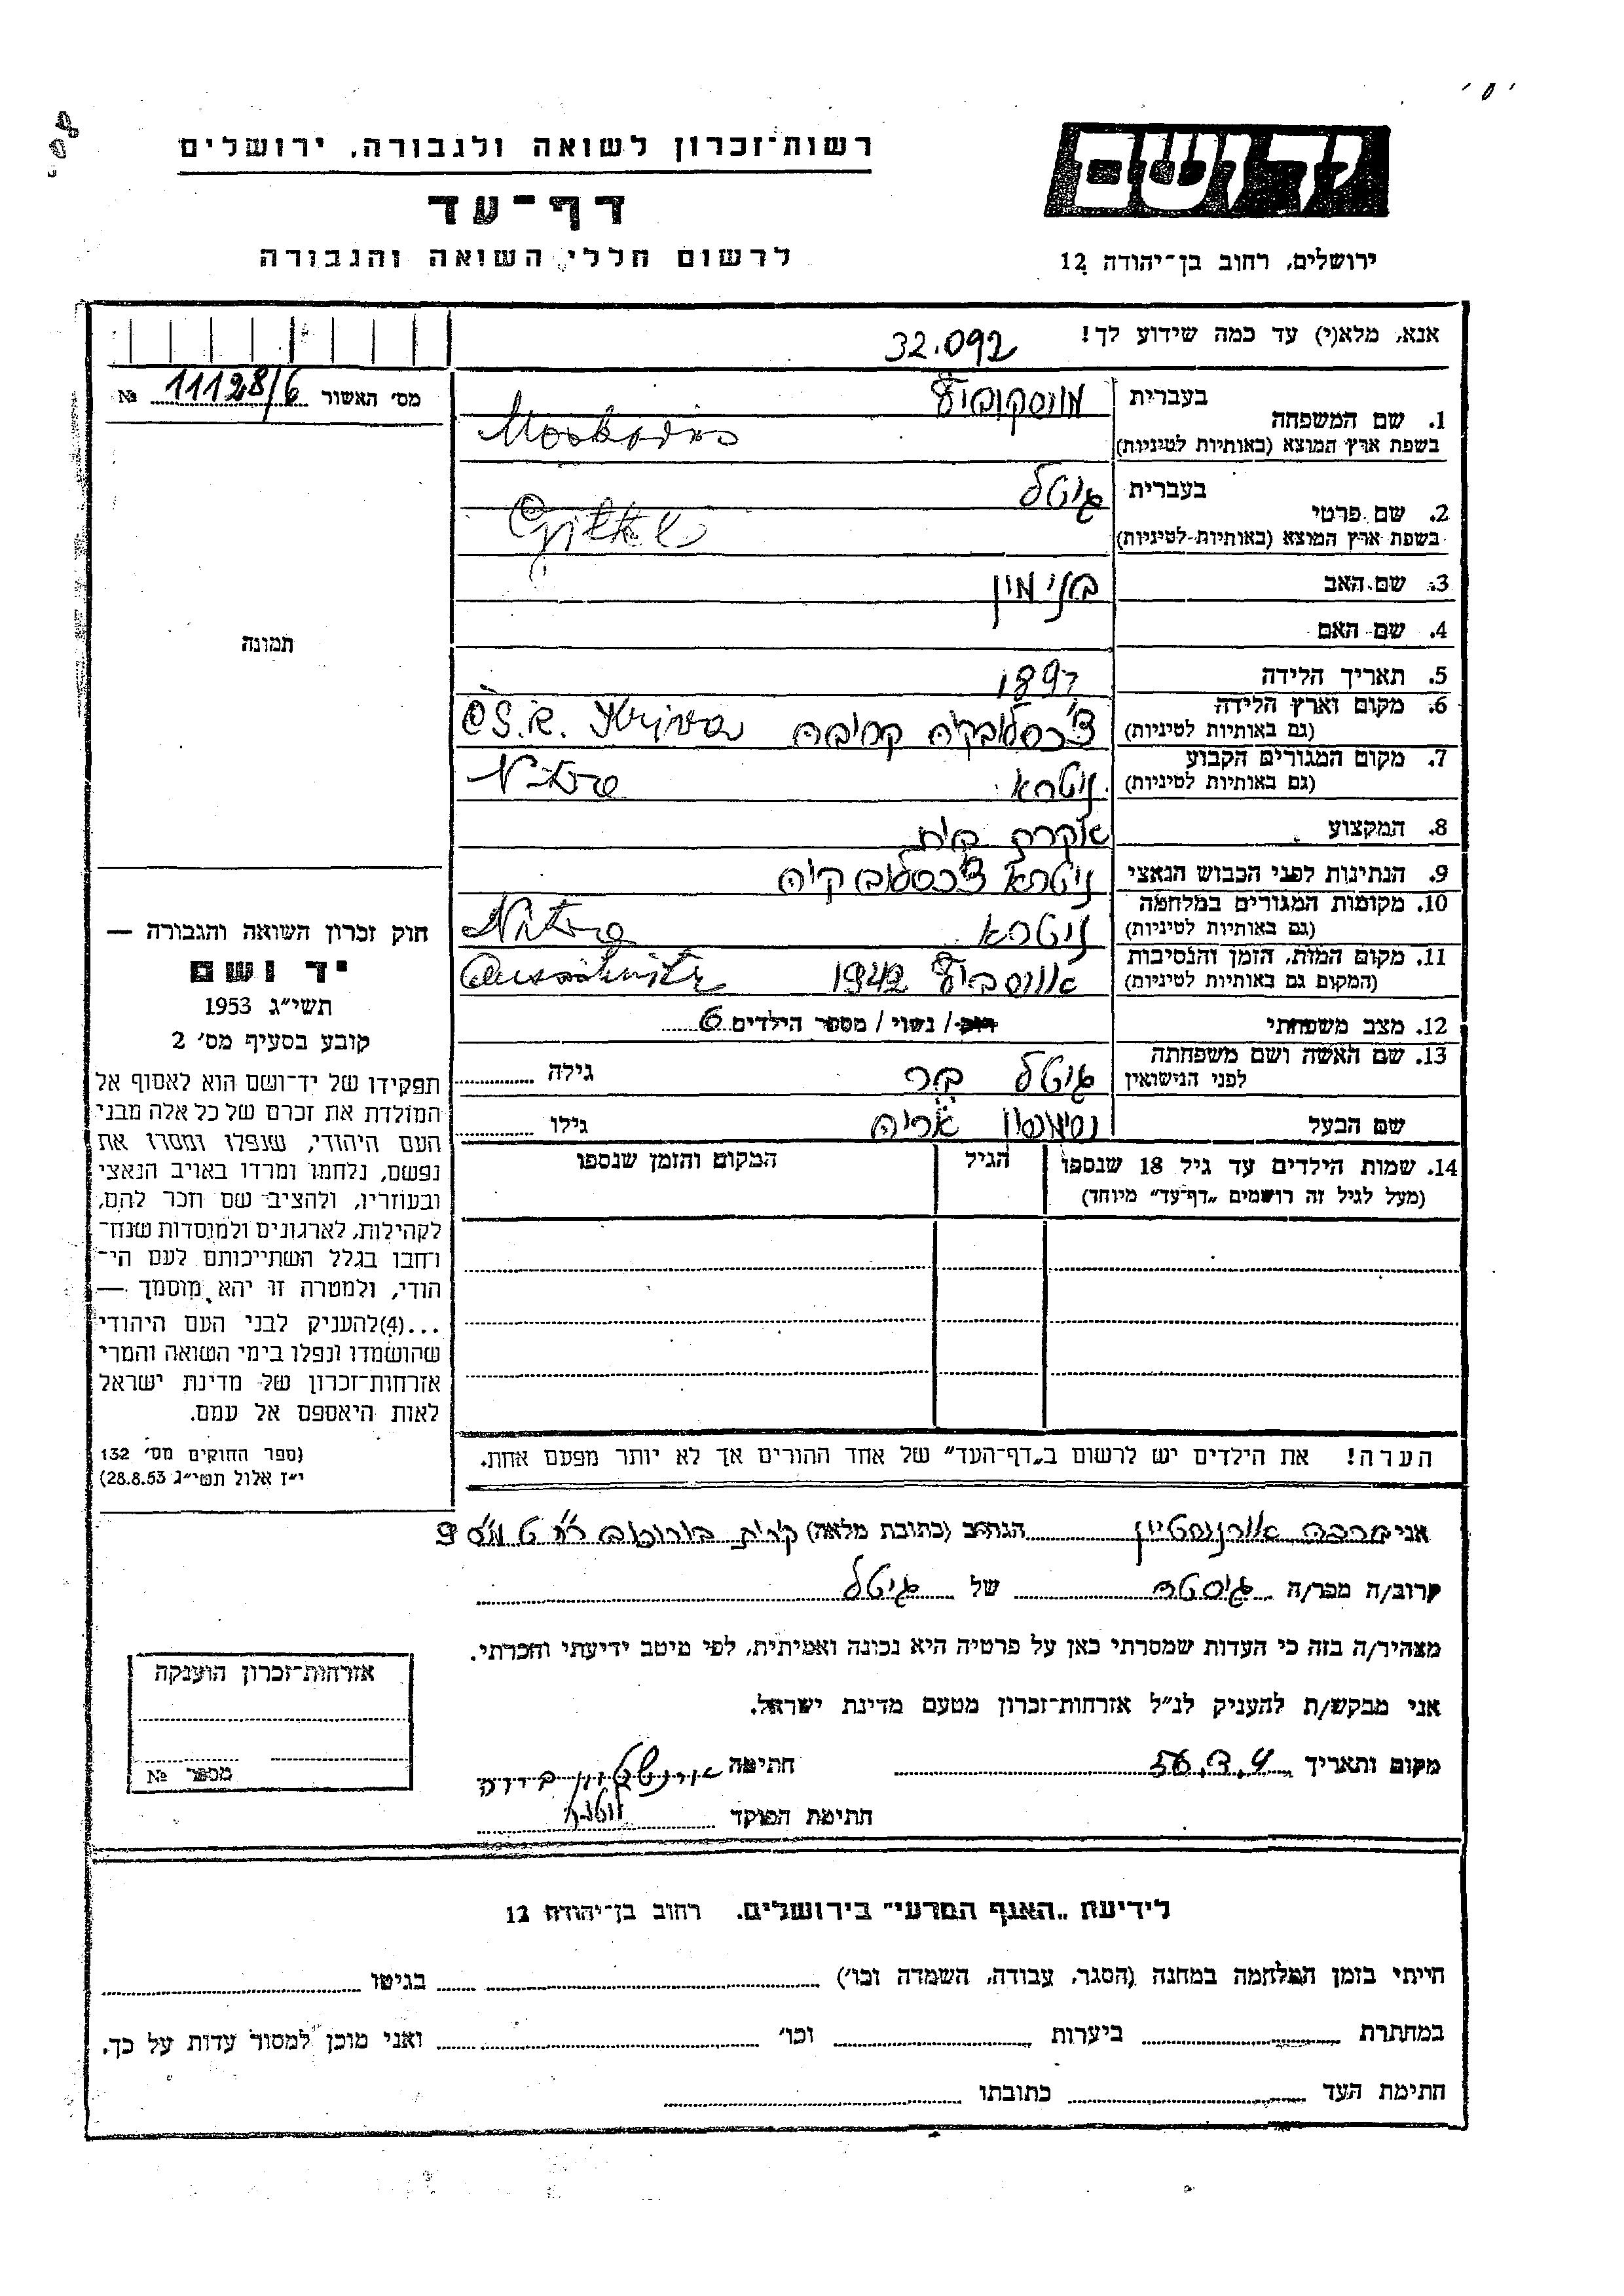 רשות־זכרון לשואה ולגבורה, ירושלים
דף־עד
לרשום חללי השואה והגבורה
יד ושם
ירושלים, רחוב בן־יהודה 12
אנא, מלא(י) עד כמה שידוע לך!
32.092
מס' האשור 11128/6 №
תמונה
1. שם המשפחה
בעברית
בשפת ארץ המוצא (באותיות לטיניות)
2. שם פרטי
בעברית גיטל
בשפת ארץ המוצא (באותיות לטיניות)
3. שם האב
4. שם האם
5. תאריך הלידה 1897
6. מקום וארץ הלידה
(גם באותיות לטיניות)
ČS.R.
7. מקום המגורים הקבוע
(גם באותיות לטיניות)
ניטרא Nitra
8. המקצוע עקרת בית
9. הנתינות לפני הכבוש הנאצי
ניטרא
10. מקומות המגורים במלחמה
(גם באותיות לטיניות)
ניטרא Nitra
11. מקום המות, הזמן והנסיבות
(המקום גם באותיות לטיניות)
1942
12. מצב משפחתי
רווק / נשוי / מספר הילדים 6
13. שם האשה ושם משפחתה
לפני הנישואין
גיטל גילה
שם הבעל אריה גילו
14. שמות הילדים עד גיל 18 שנספו
(מעל לגיל זה רושמים „דף־עד" מיוחד)
הגיל
המקום והזמן שנספו
הערה! את הילדים יש לרשום ב„דף־העד" של אחד ההורים אך לא יותר מפעם אחת.
חוק זכרון השואה והגבורה —
יד ושם
תשי״ג 1953
קובע בסעיף מס' 2
תפקידו של יד־ושם הוא לאסוף אל
המולדת את זכרם של כל אלה מבני
העם היהודי, שנפלו ומסרו את
נפשם, נלחמו ומרדו באויב הנאצי
ובעוזריו, ולהציב שם וזכר להם,
לקהילות, לארגונים ולמוסדות שנח־
רבו בגלל השתייכותם לעם הי־
הודי, ולמטרה זו יהא מוסמך —
...(4)להעניק לבני העם היהודי
שהושמדו ונפלו בימי השואה והמרי
אזרחות־זכרון של מדינת ישראל
לאות היאספם אל עמם.
(ספר החוקים מס' 132
י״ז אלול תשי״ג 28.8.53)
אני הגר/ה ב (כתובת מלאה)
קרוב/ה מכר/ה גיסתה של גיטל
מצהיר/ה בזה כי העדות שמסרתי כאן על פרטיה היא נכונה ואמיתית, לפי מיטב ידיעתי והכרתי.
אני מבקש/ת להעניק לנ״ל אזרחות־זכרון מטעם מדינת ישראל.
מקום ותאריך חתימה
חתימת הפוקד
אזרחות־זכרון הוענקה
מספר №
לידיעת „האגף המדעי" בירושלים. רחוב בן־יהודה 12
הייתי בזמן המלחמה במחנה (הסגר, עבודה, השמדה וכו') בגיטו
במחתרת ביערות וכו' ואני מוכן למסור עדות על כך.
חתימת העד כתובתו